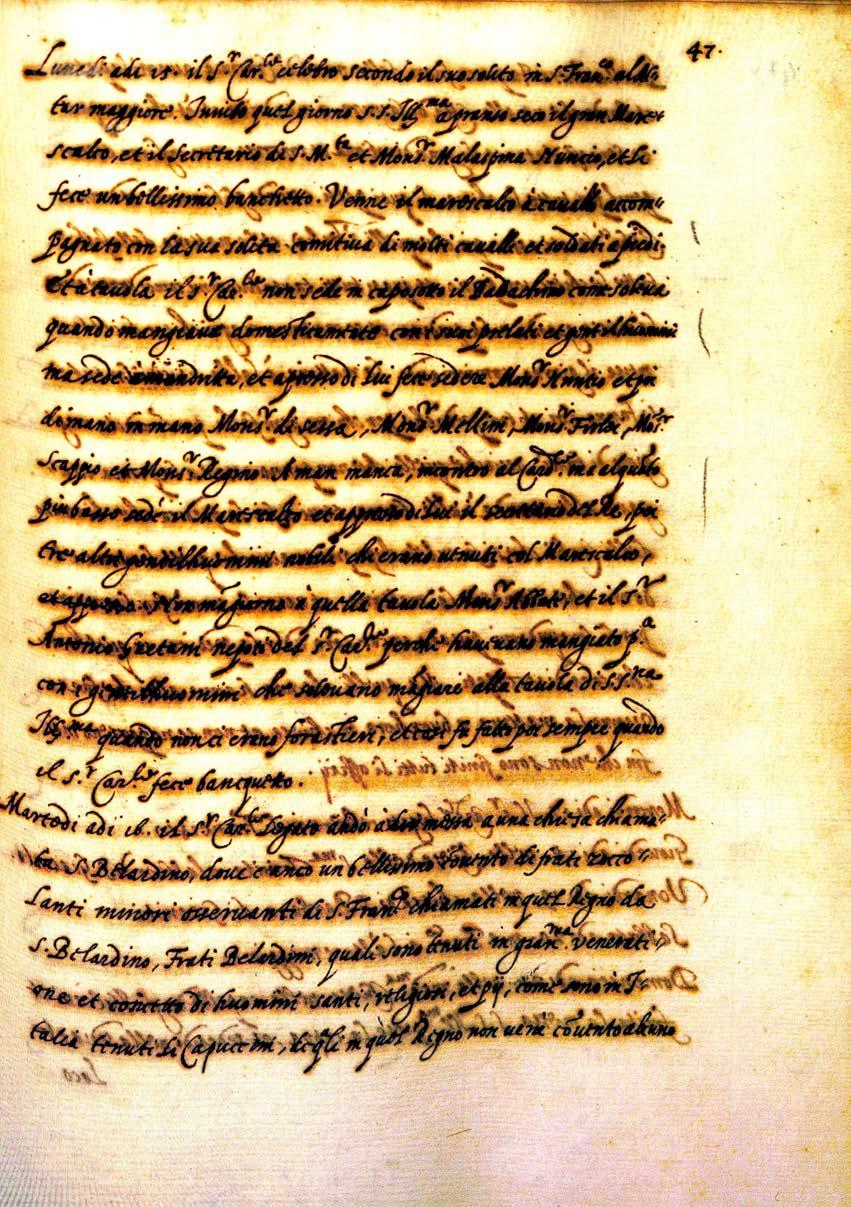 47.
Lunedi adi 15. il S.r Car.le celebro secondo il suo solito in S. Fran.co al Al=
tar maggiore. Invito quel giorno S. S. Ill.ma a pranso seco il gran Mare=
scalco, et il secretario di S. M.ta et Mons.r Malaspina Nuncio, et li
fece un bellissimo banchetto. Venne il marescalco à cavallo accom=
pagnato con la sua solita comitiva di molti cavalli et soldati a piedi.
Et à tavola il s.r Car.le non sede in capo sotto il Baldachino come soleva
quando mangiava domesticamente con i suoi prelati et gentilhuomini
ma sede a man dritta, et apresso di lui fece sedere Mons.r Nuntio et poi
di mano in mano Mons.r di sessa, Mons.r Mellini, Mons.r Mons.r
Scappio et Mons.r A man manca, incontro al Card.le ma alquãto
piu basso sedè il Marescalco et appresso di lui il secretario del Re, poi
tre altri gentilhuomini nobili chi erano venuti col Marescalco,
et appresso. Non mãgiorno à quella tavola Mons.r Abbate, et il S.r
Antonio Gaetani nepoti del S.r Card.le perche havevano mangiato p.a
con i gentilhuomini che solevano mãgiare alla tavola di S. S.ria
Ill.ma quando non ci erano forastieri, et cosi fu fatto poi sempre quando
il S.r Car.le fece bancquetto.
Martedi adi 16. il S.r Car.le Legato andò à dir messa a una chiesa chiama=
ta S. Belardino, dove è anco un bellissimo cõvento di frati zocco=
lanti minori osservanti di S. Fran.co chiamati in quel Regno da
S. Belardino, Frati Belardini, quali sono tenuti in gran.ma venerati=
one et concetto di huomini santi, religiosi, et pij, come sono in I=
talia tenuti li Capuccini, de q̃li in q̃uel Regno non ve nè cõvento alcuno